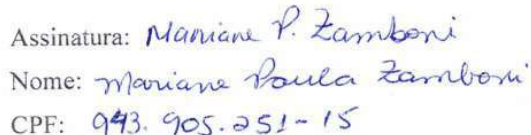 Assinatura: Mariane P. Zamboni
Nome: Mariane Paula Zamboni
CPF: 943.905.251-15